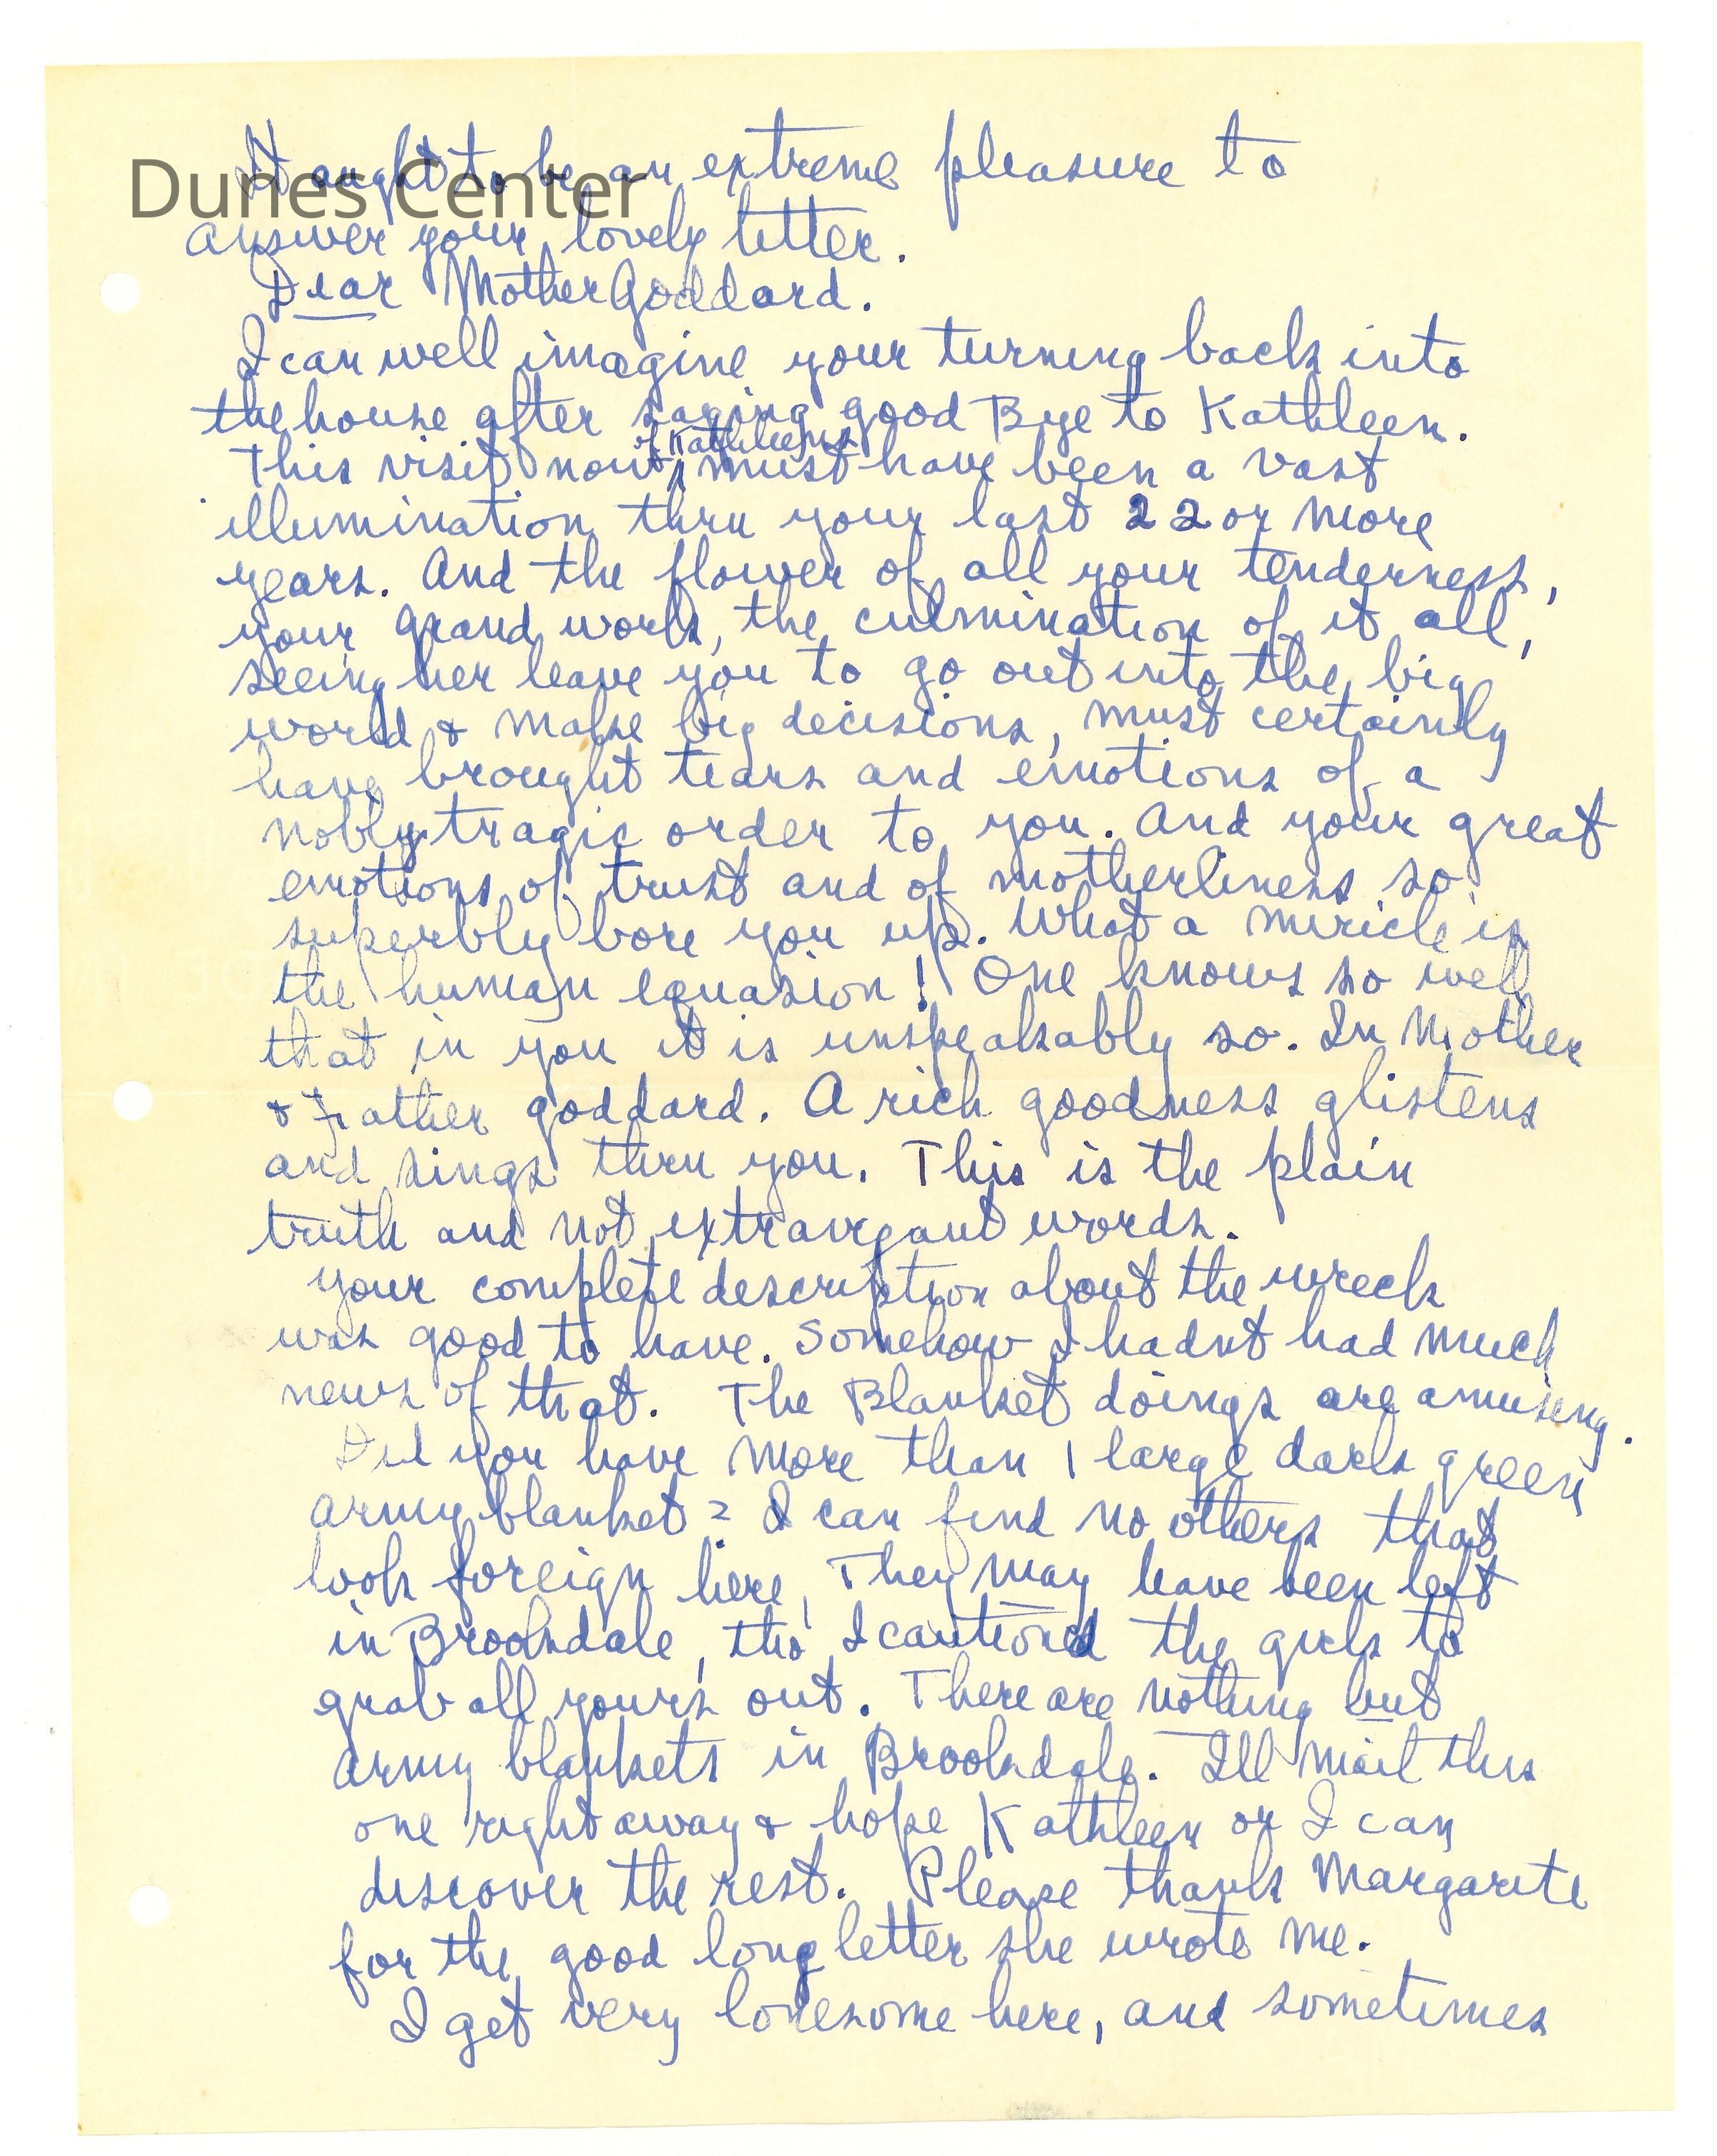 Dunes Center
It ought to be an extreme pleasure to
answer your lovely letter.
Dear Mother Goddard.
I can well imagine your turning back into
the house after saying good Bye to Kathleen.
of Kathleens
This visit now must have been a vast
illumination thru your last 22 or more
years. And the flower of all your tenderness,
your grand work, the culmination of it all,
seeing her leave you to go out into the big
world & make big decisions, must certainly
have brought tears and emotions of a
nobly tragic order to you. And your great
emotions of trust and of motherliness so
superbly bore you up. What a miricle is
the human equasion! One knows so well
that in you it is unspeakably so. In Mother
& Father Goddard. A rich goodness glistens
and sings thru you. This is the plain
truth and not extravegant words.
Your complete description about the wreck
was good to have. Somehow I hadnt had much
news of that. The Blanket doings are amusing.
Did you have more than 1 large dark green
army blanket? I can find no others that
look foreign here, They may have been left
in Brookdale, tho I cautioned the girls to
grab all yours out. There are nothing but
army blankets in Brookdale. Ill mail this
one right away & hope Kathleen or I can
discover the rest. Please thank Margarite
for the good long letter she wrote me.
I get very lonesome here, and sometimes